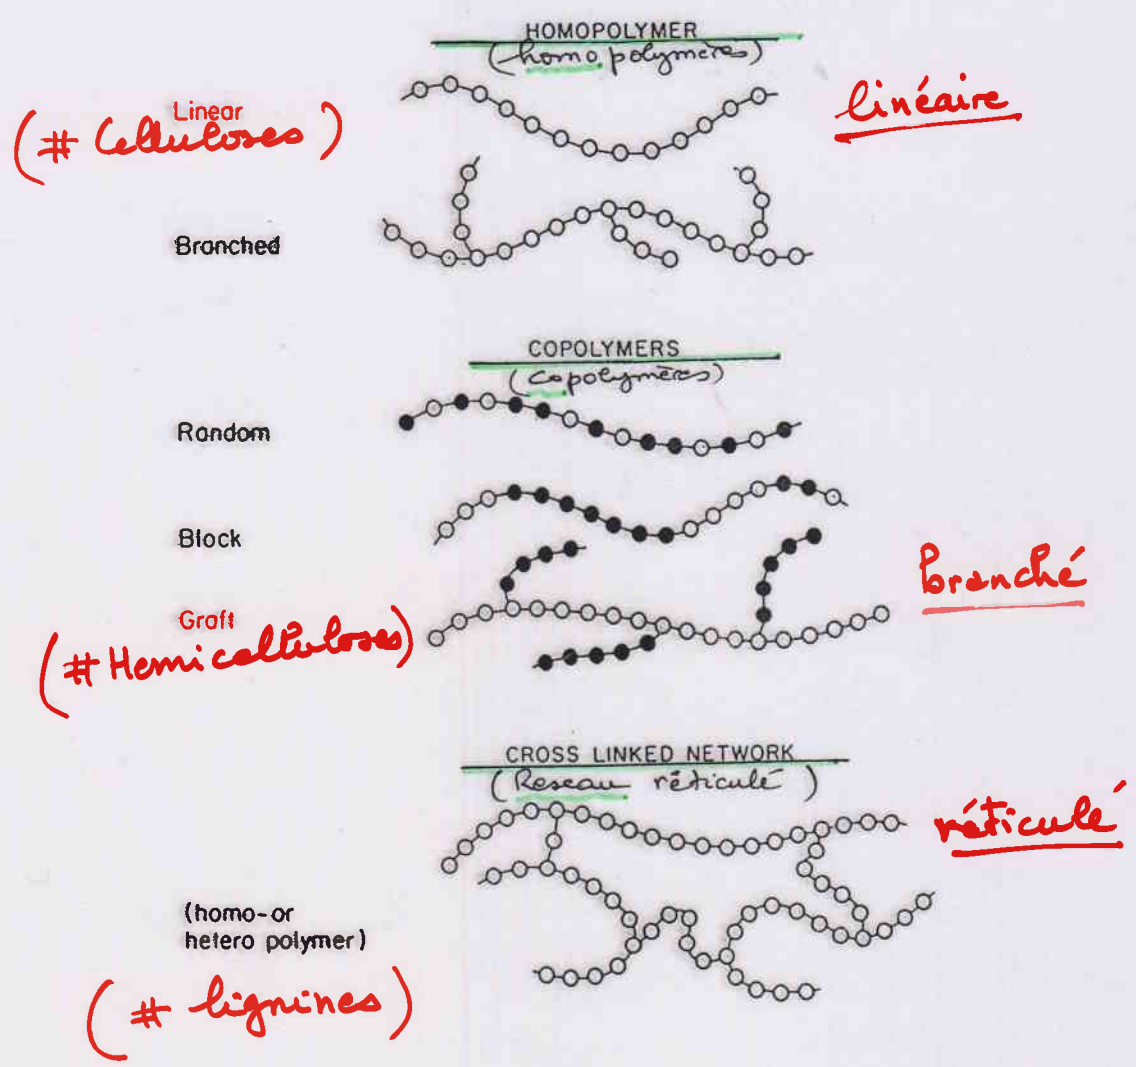 HOMOPOLYMER
(homopolymères)
Linear
(# Celluloses)
linéaire
Branched
COPOLYMERS
(copolymères)
Random
Block
Graft
(# Hemicelluloses)
branché
CROSS LINKED NETWORK
(Reseau réticulé)
réticulé
(homo- or
hetero polymer)
(# lignines)